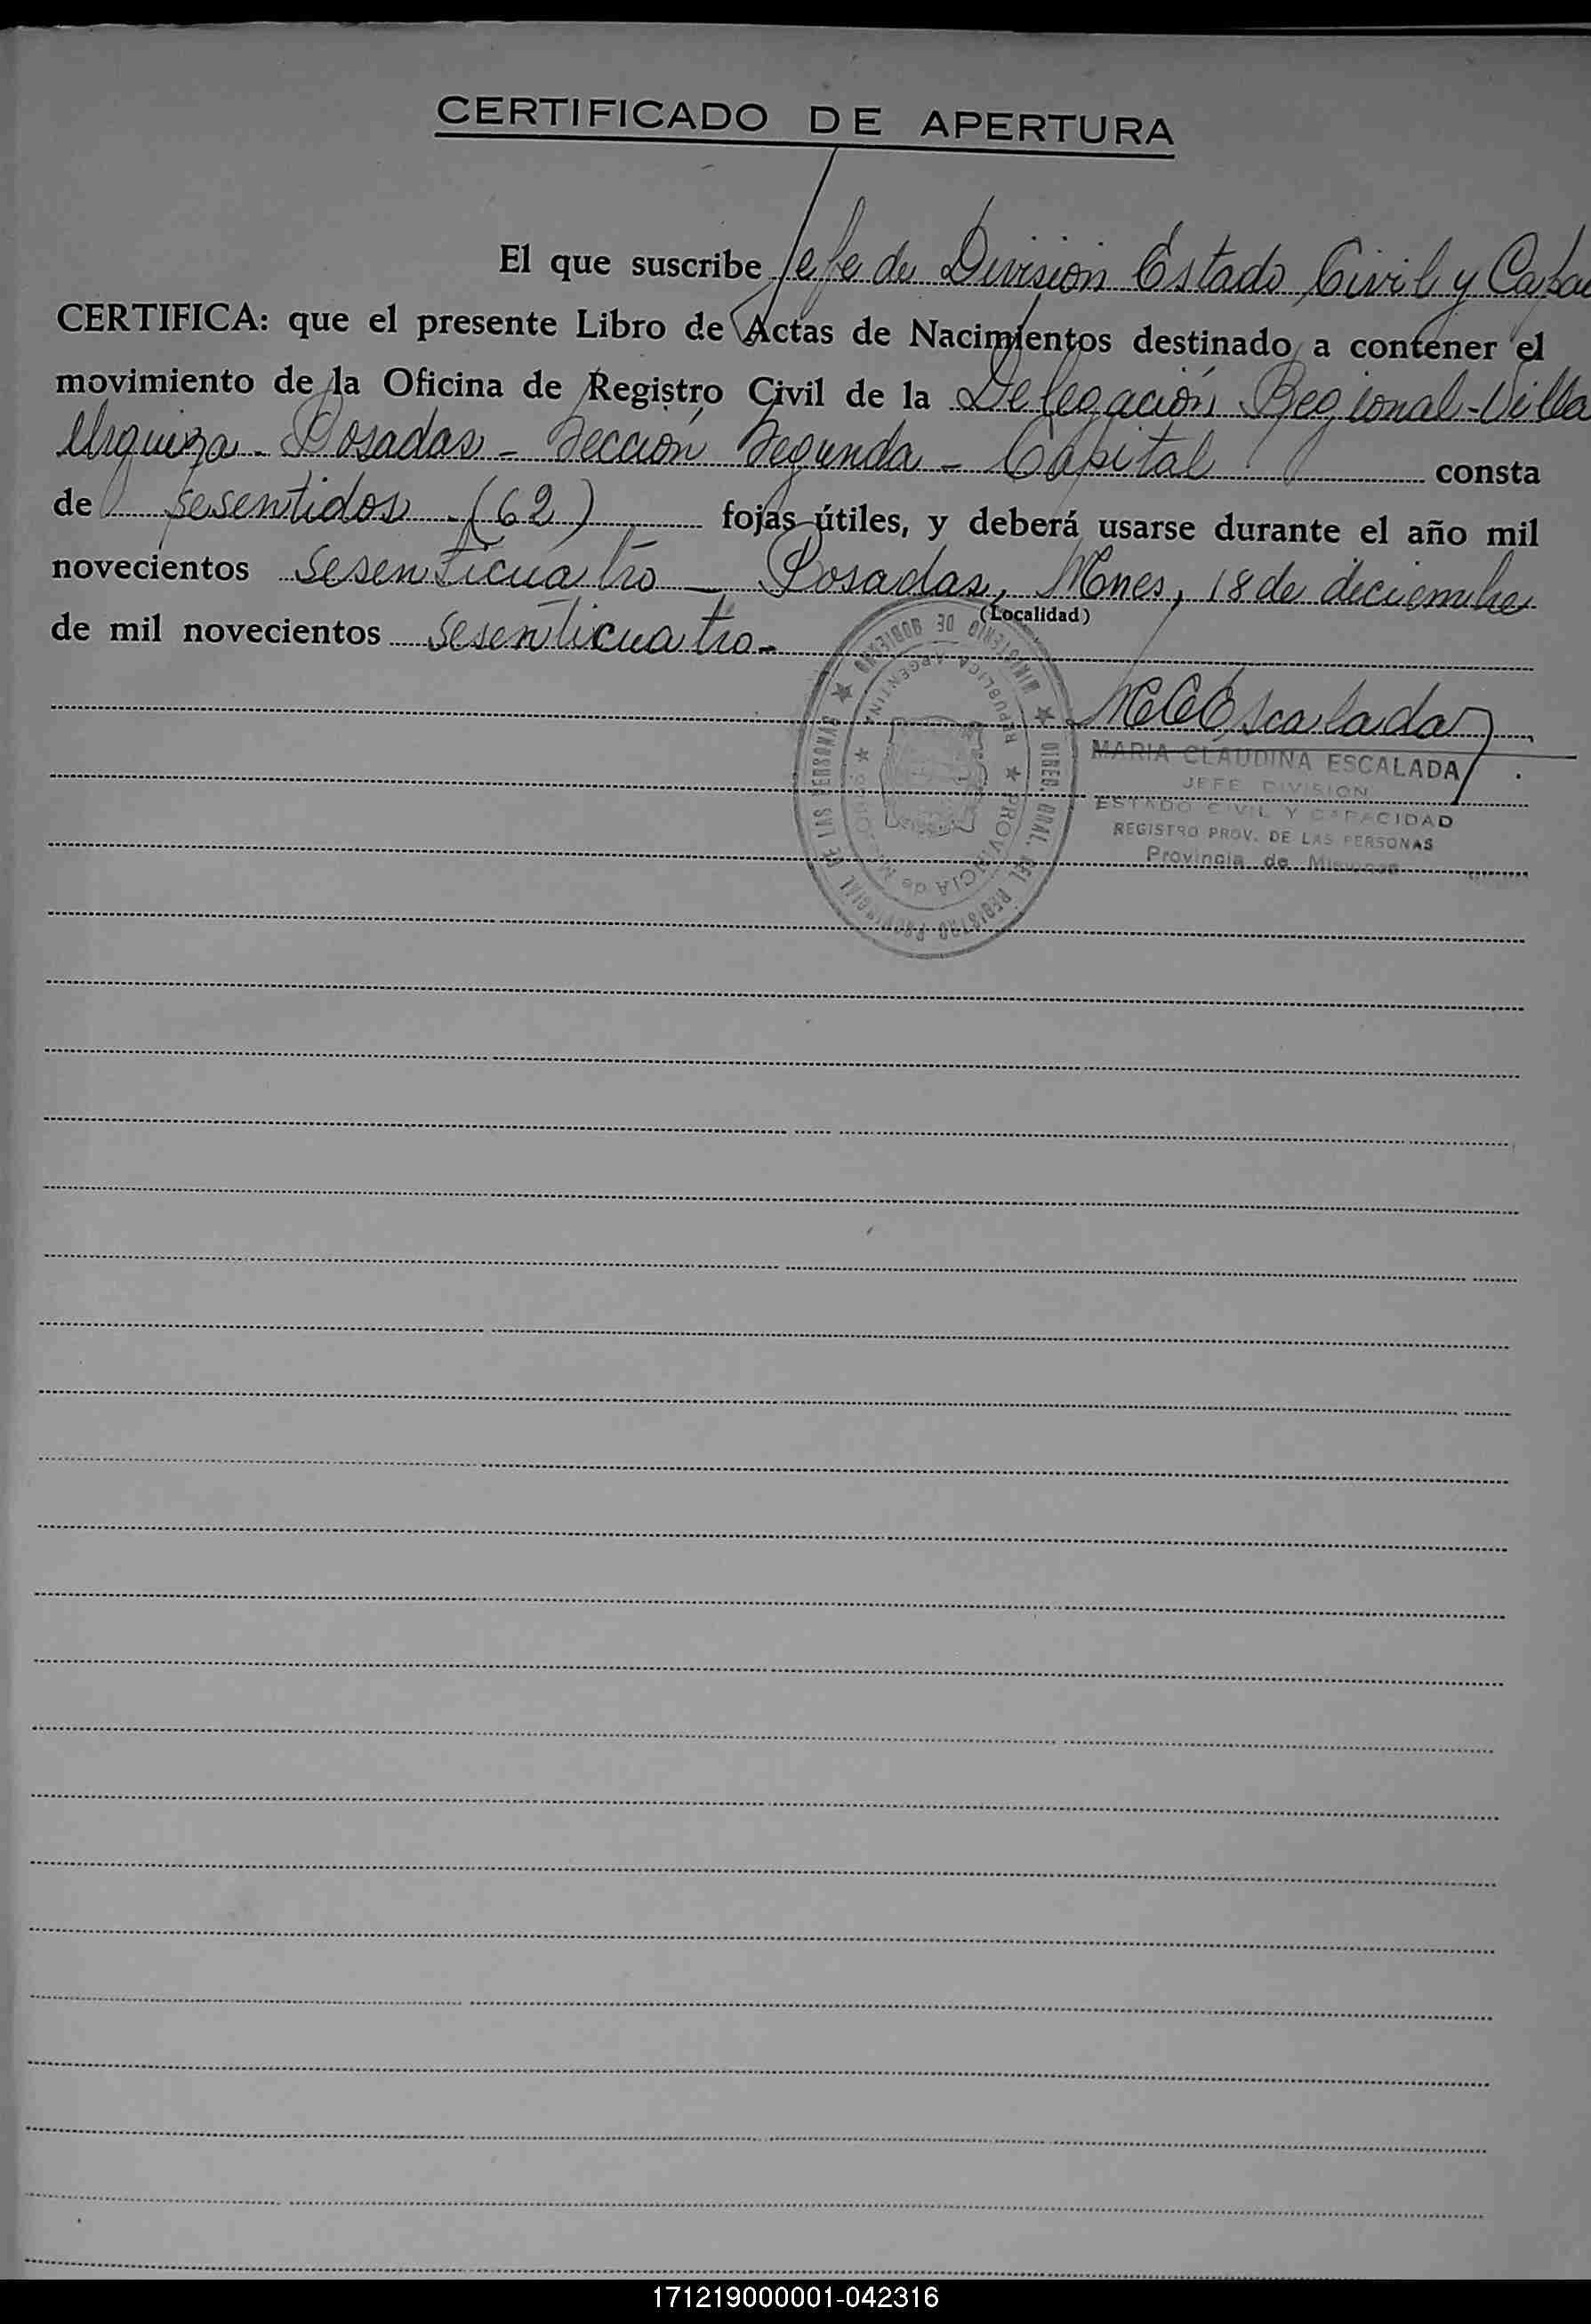 CERTIFICADO DE APERTURA
El que suscribe Jefe de División Estado Civil y Capac
CERTIFICA: que el presente Libro de Actas de Nacimientos destinado a contener el
movimiento de la Oficina de Registro Civil de la Delegación Regional - Villa
Urquiza - Posadas - Sección Segunda - Capital consta
de sesentidos (62) fojas útiles, y deberá usarse durante el año mil
novecientos sesenticuatro - Posadas, Mnes, 18 de diciembre
(Localidad)
de mil novecientos sesenticuatro -
MCEscalada
MARIA CLAUDINA ESCALADA
JEFE DIVISION
ESTADO CIVIL Y CAPACIDAD
REGISTRO PROV. DE LAS PERSONAS
Provincia de Misiones
★ MINISTERIO DE GOBIERNO ★ DIREC. GRAL. DEL REGISTRO PROVINCIAL DE LAS PERSONAS
REPUBLICA ARGENTINA ★ PROVINCIA de MISIONES ★
171219000001-042316